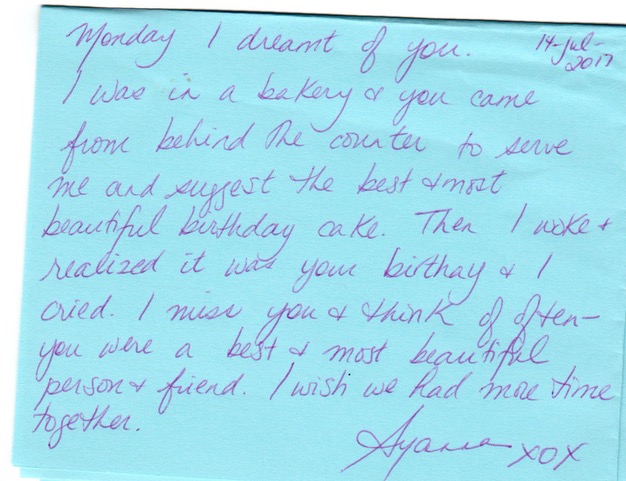 Monday I dreamt of you. 14-Jul-
2017
I was in a bakery & you came
from behind the counter to serve
me and suggest the best & most
beautiful birthday cake. Then I woke &
realized it was your birthay & I
cried. I miss you & think of often-
you were a best & most beautiful
person & friend. I wish we had more time
together.
Ayana XOX